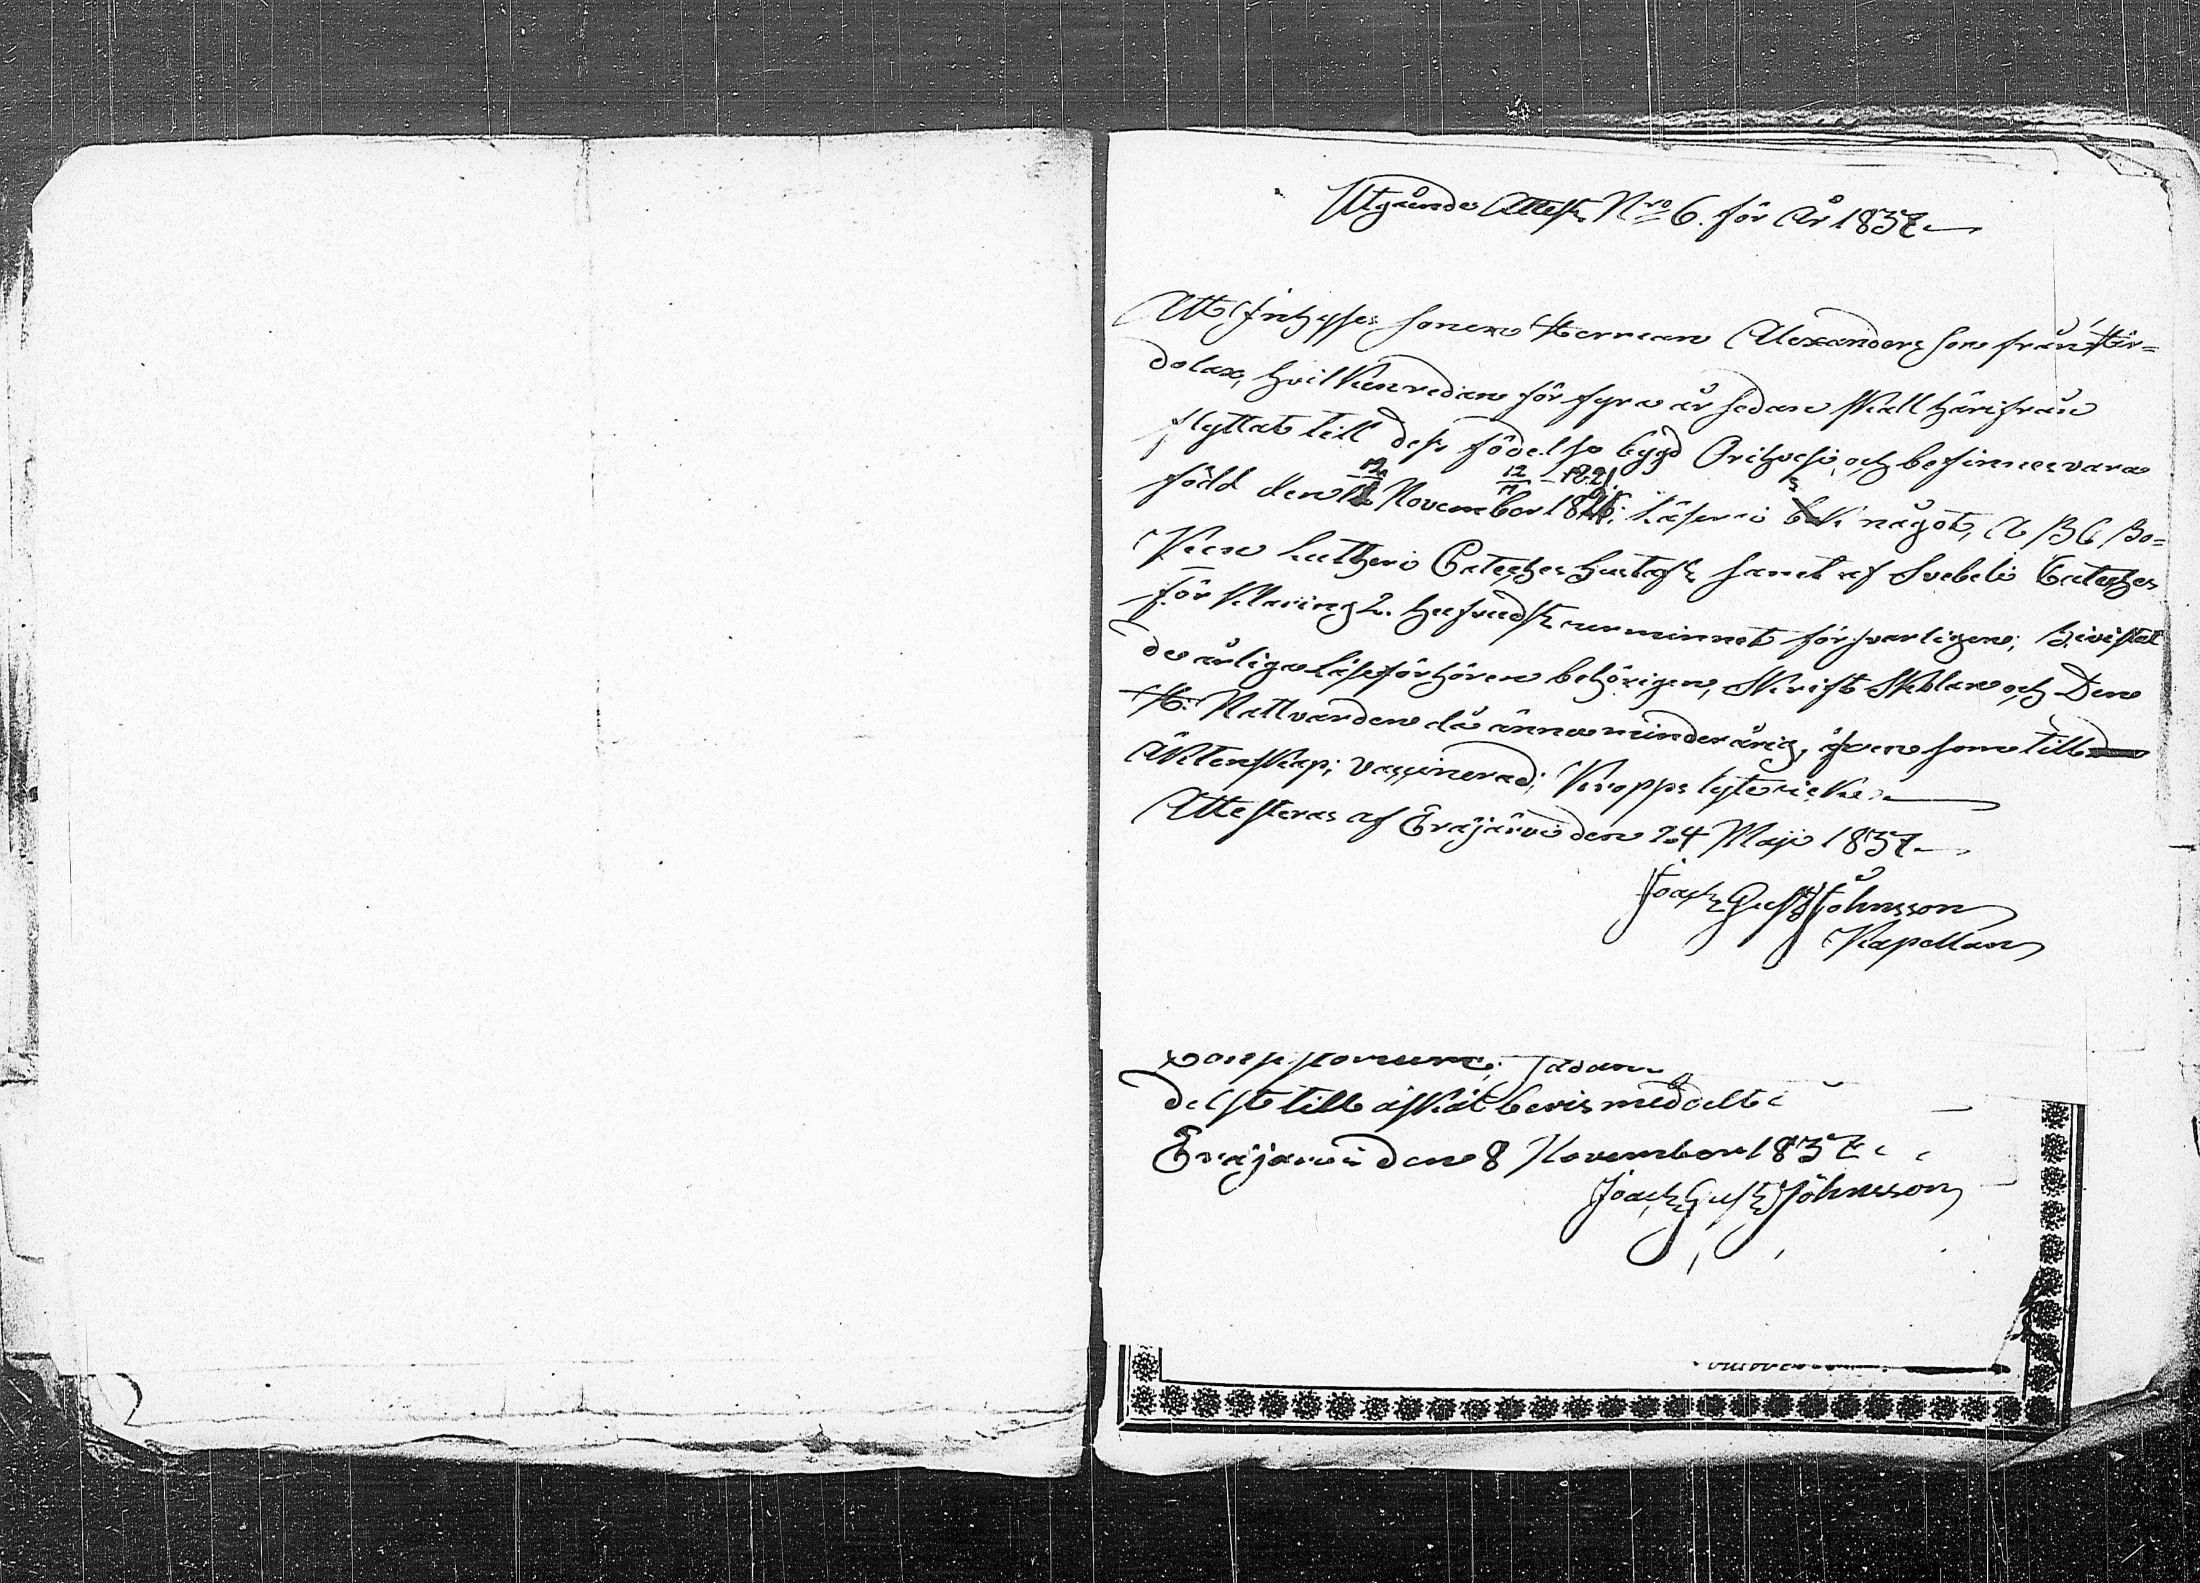 Utgående Attest Nro 6. för År 1837
Att Inhyses sonen Herman Alexandersson från Hir=
dolax, hvilken redan för fyra år sedan skall härifrån
flyttat till dess födelse bygd Orihvesi, och befinnes vara
12/11 12/11 - 1821.
född den November 18 Läser i bok något, A B C Bo=
ken Lutheri Cateches hustafl. samt af Svebelii Cateches
förklaring 2. hufvudst. ur minnet försvarligen; bivistat
de årliga Läseförhören behörigen, Skriftskolan och Den
H. Nattvarden då ännu minderårig, äfven som till
Äktenskap; vaccinerad; kropps lyte icke.
Attesteras af Eräjärvi den 24 Maji 1837
Joach. Gust. Johnsson
Kapellan
sådan
till äskat bevis meddelt i
Eräjärvi den 8 November 1837
Joach. Gust. Johnsson